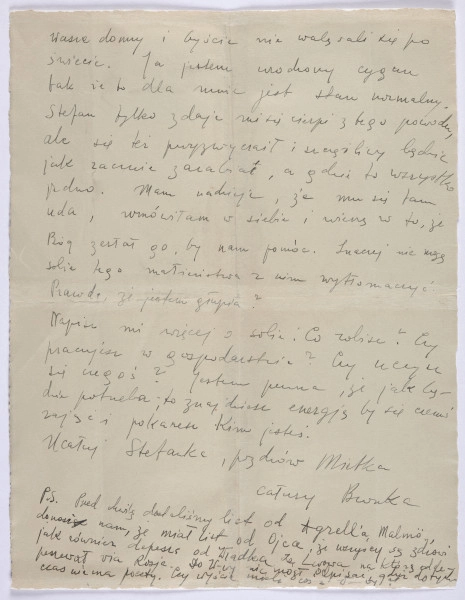 Wasze domy i byście nie wałęsali się po
świecie. Ja jestem urodzony cygan
tak że to dla mnie jest stan normalny.
Stefan tylko zdaje mi się cierpi z tego powodu,
ale się też przyzwyczaił i szczęśliwy będzie
jak zacznie zarabiać, a gdzie to wszystko
jedno. Mam nadzieję, że mu się tam
uda, wmówiłam w siebie i wierzę w to, że
Bóg zesłał go, by nam pomóc. Inaczej nie mogę
sobie tego małżeństwa z nim wytłomaczyć
Prawda, że jestem głupia?
Napisz mi więcej o sobie! Co robisz? Czy
pracujesz w gospodarstwie? Czy uczysz
się czegoś? Jestem pewna, że jak bę-
dzie potrzeba, to znajdziesz energję by się czemś
zająć i pokażesz kim jesteś.
Ucałuj Stefanka, pozdrów Mietka
całusy Bronka
P.S. Przed chwilą dostaliśmy list od Agrell'a, Malmö
donosi nam, że miał list od Ojca, że wszyscy są zdrowi
jak również depeszę od Władka ze Lwowa na którą odpis
ponowił via Rosja. Do W-wy nie mógł depeszować gdyż dotych
czas nie ma poczty. Czy wyście